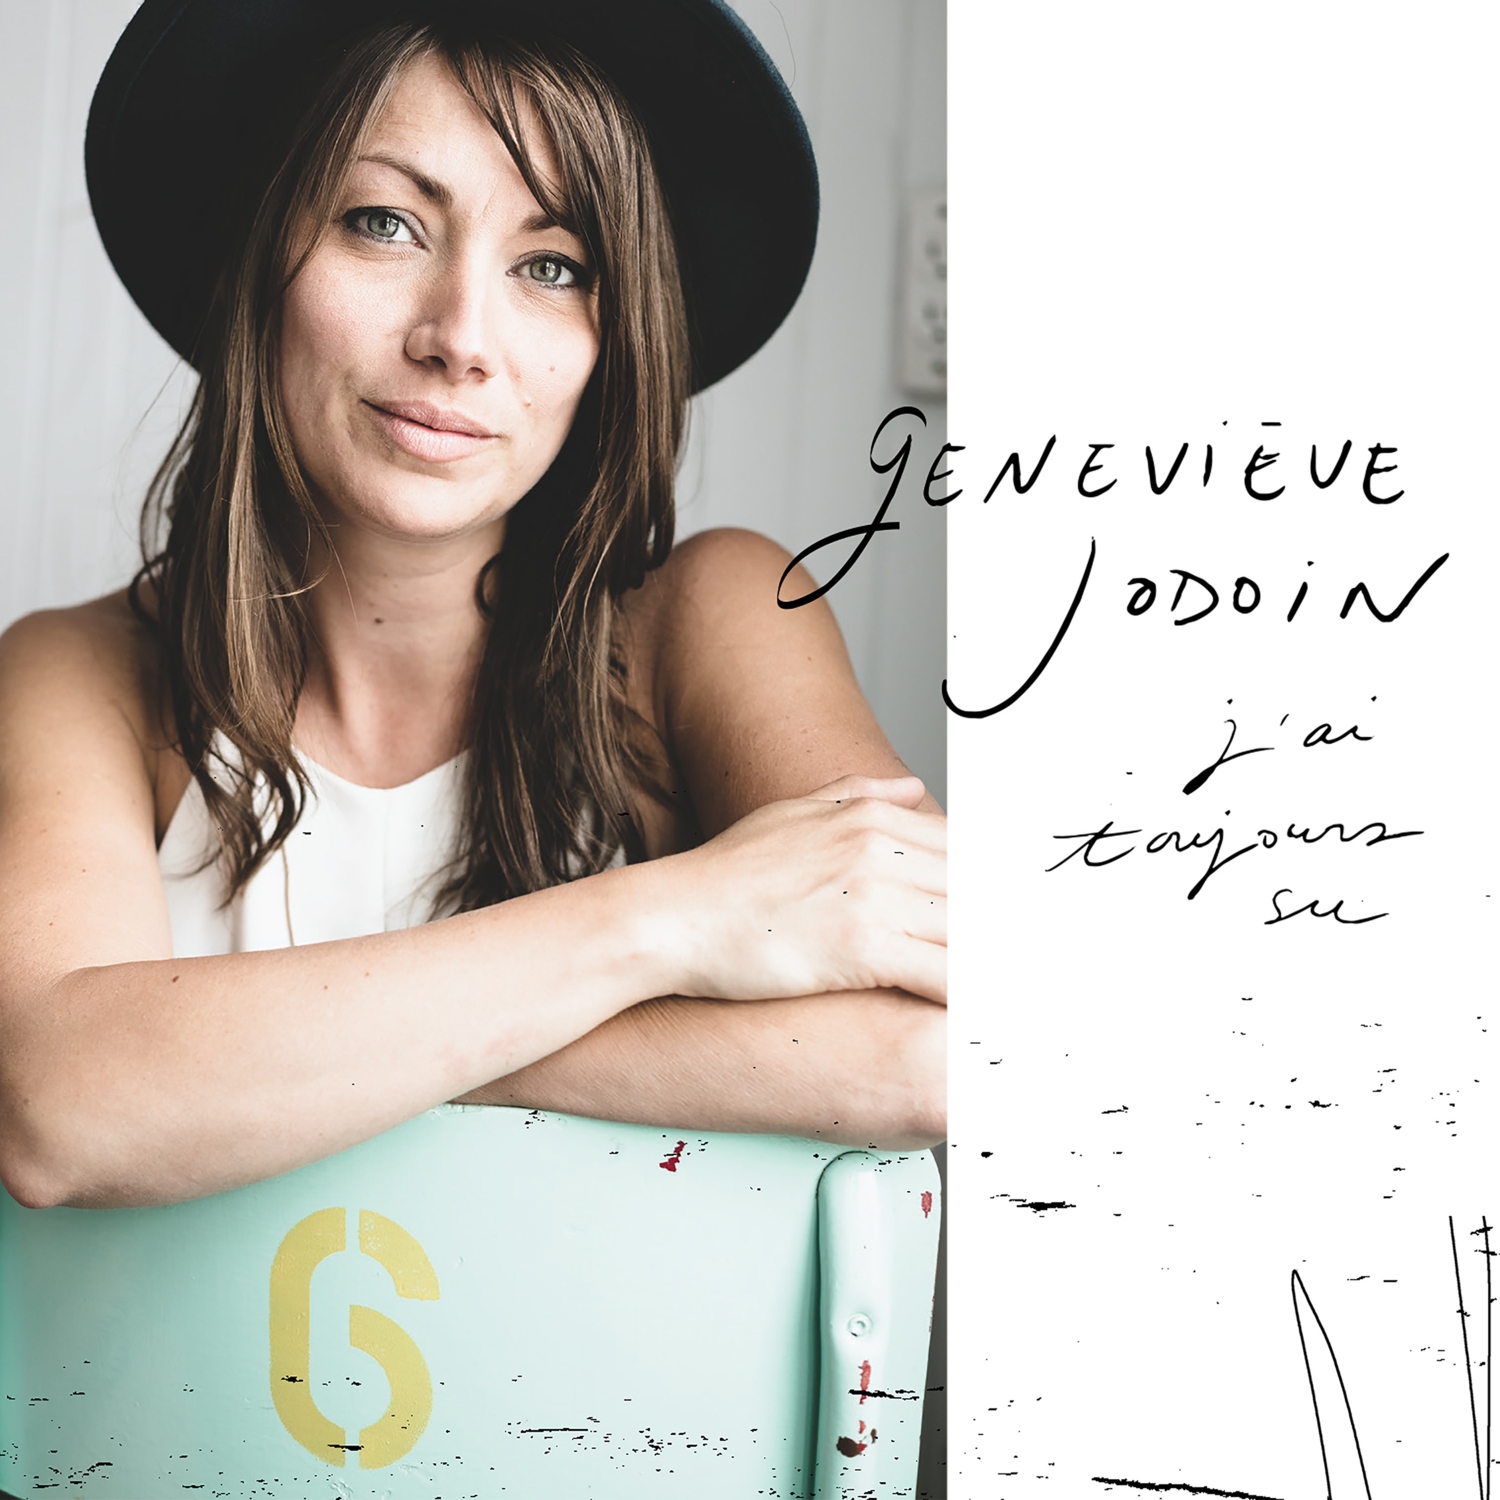 GENEVIÈVE
JODOIN
j'ai
toujours
su
6